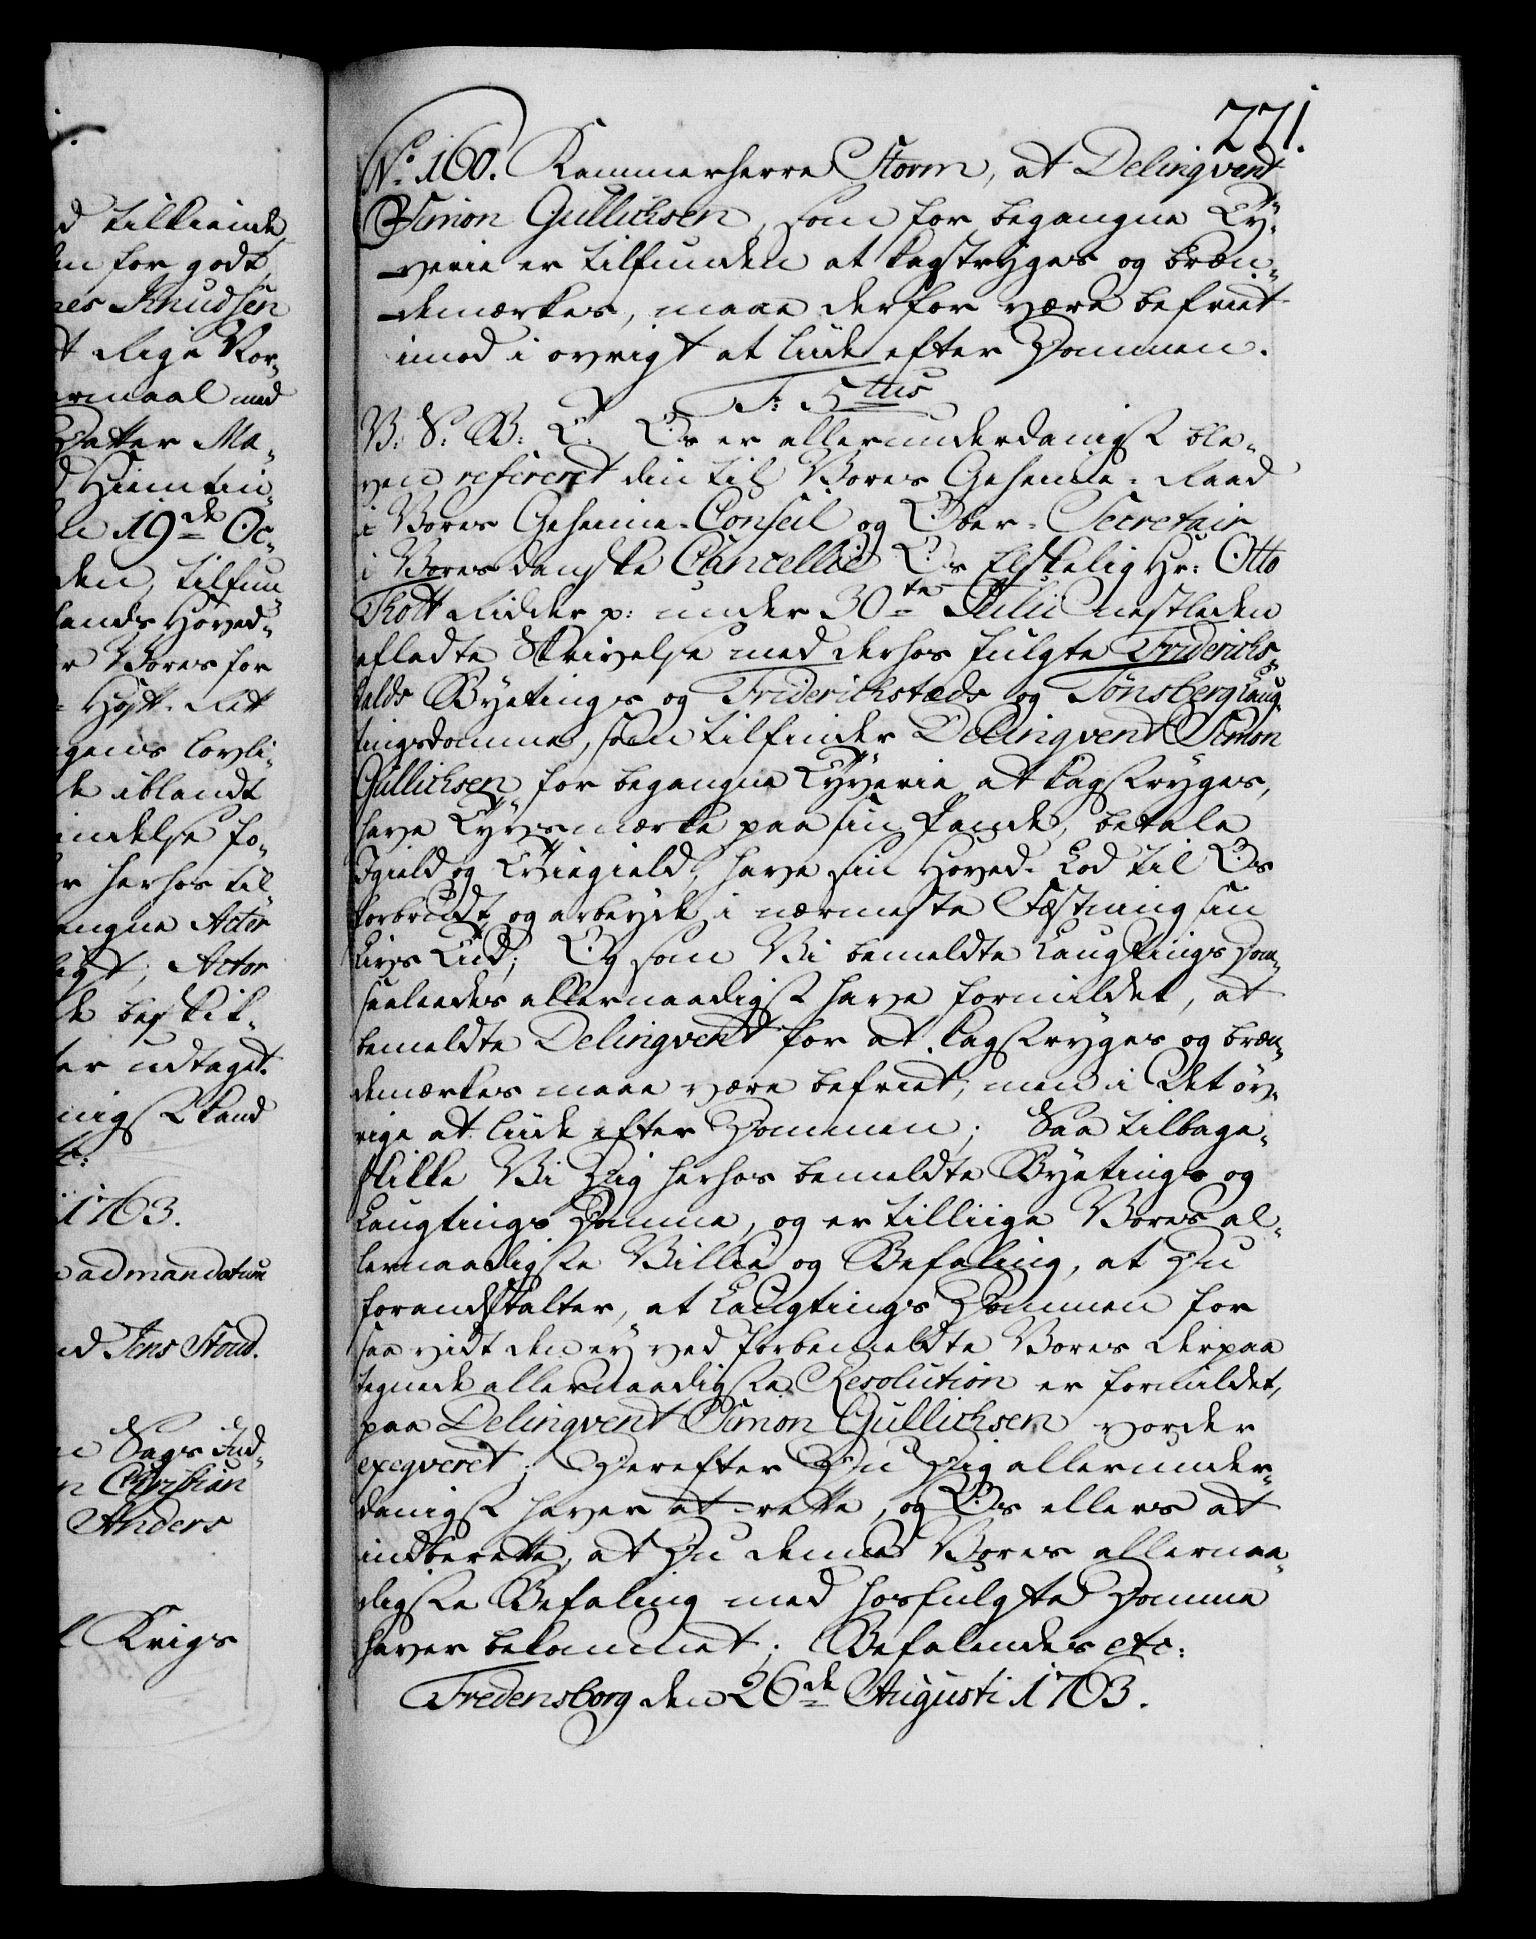 271.
No. 160. Kammerherre Storm, at Delinqvent
Simon Gullichsen, som for begangne Ty-
verie er tilfunden at kagstryges og bræn-
demærkes, maae derfor være befriet
imod i øvrigt at liide efter Dommen.
F: 5tus
V: S: B: T: Os er allerunderdanigst ble-
ven refereret din til Vores Geheime-Raad
i Vores Geheime-Conseil og Ober-Secretair
i Vores danske Cancellie Os Elskelig Hr: Otto
Thott Ridder p: under 30te Julii nestleden
afladte Skrivelse med derhos fulgte Friderichs-
halds Byetings og Friderichstads og Tønsberg Laug-
tingsdomme, som tilfinder Delinqvent Simon
Gullichsen for begangne Tyverie at kagstryges,
have Tyvsmærke paa sin Pande, betale
Igield og Tviegield, have sin Hoved-Lod til Os
forbrudt og arbeyde i nærmeste Fæstning sin
Livs Tiid; Og som Vi bemeldte Laugtings Dom
saaleedes allernaadigst have formildet, at
bemeldte Delinqvent for at kagstryges og bræn-
demærkes maae være befriet, men i det øv-
rige at liide efter Dommen; Saa tilbage-
skikke Vi Dig herhos bemeldte Byetings og
Laugtings Domme, og er tilliige Vores al-
lernaadigste Villie og Befaling, at Du
foranstalter, at Laugtings Dommen for
saa vidt den ey ved forbemeldte Vores derpaa
tegnede allernaadigste Resolution er formildet,
paa Delinqvent Simon Gullichsen vorder
exeqveret; Derefter Du Dig allerunder-
danigst haver at rette, og Os ellers at
indberette, at Du denne Vores allernaa-
digste Befaling med hosfulgte Domme
haver bekommet; Befalendes etc:
Fredensborg den 26de Augusti 1763.
d tilkiende
for godt,
nes Knudsen
Rige Nor-
med
Datter Ma-
19de Oc-
den, tilfun-
lands Hoved-
r Vores for
Høyst-Ret
lovli-
de iblandt
indelse fo-
r herhos til
Actor
Actor
de beskik-
ter udtaget
nigst kand
1763.
ad mandatum
Jens Stoud.
Sags Ind-
n Christian
Anders
Krigs